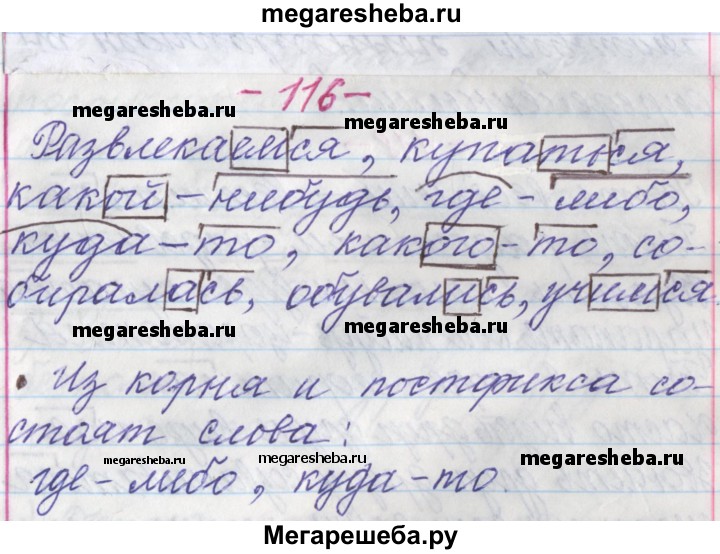 megaresheba.ru
- 116 -
megaresheba.ru
megaresheba.ru
Развлекаемся, купаться,
какой-нибудь, где-либо,
куда-то, какого-то, со-
megaresheba.ru
megaresheba.ru
биралась, обувались, учимся
megaresheba.ru
megaresheba.ru
• Из корня и постфикса со-
стоят слова:
megaresheba.ru
megaresheba.ru
megaresheba.ru
где-либо, куда-то.
Мегарешеба.ру